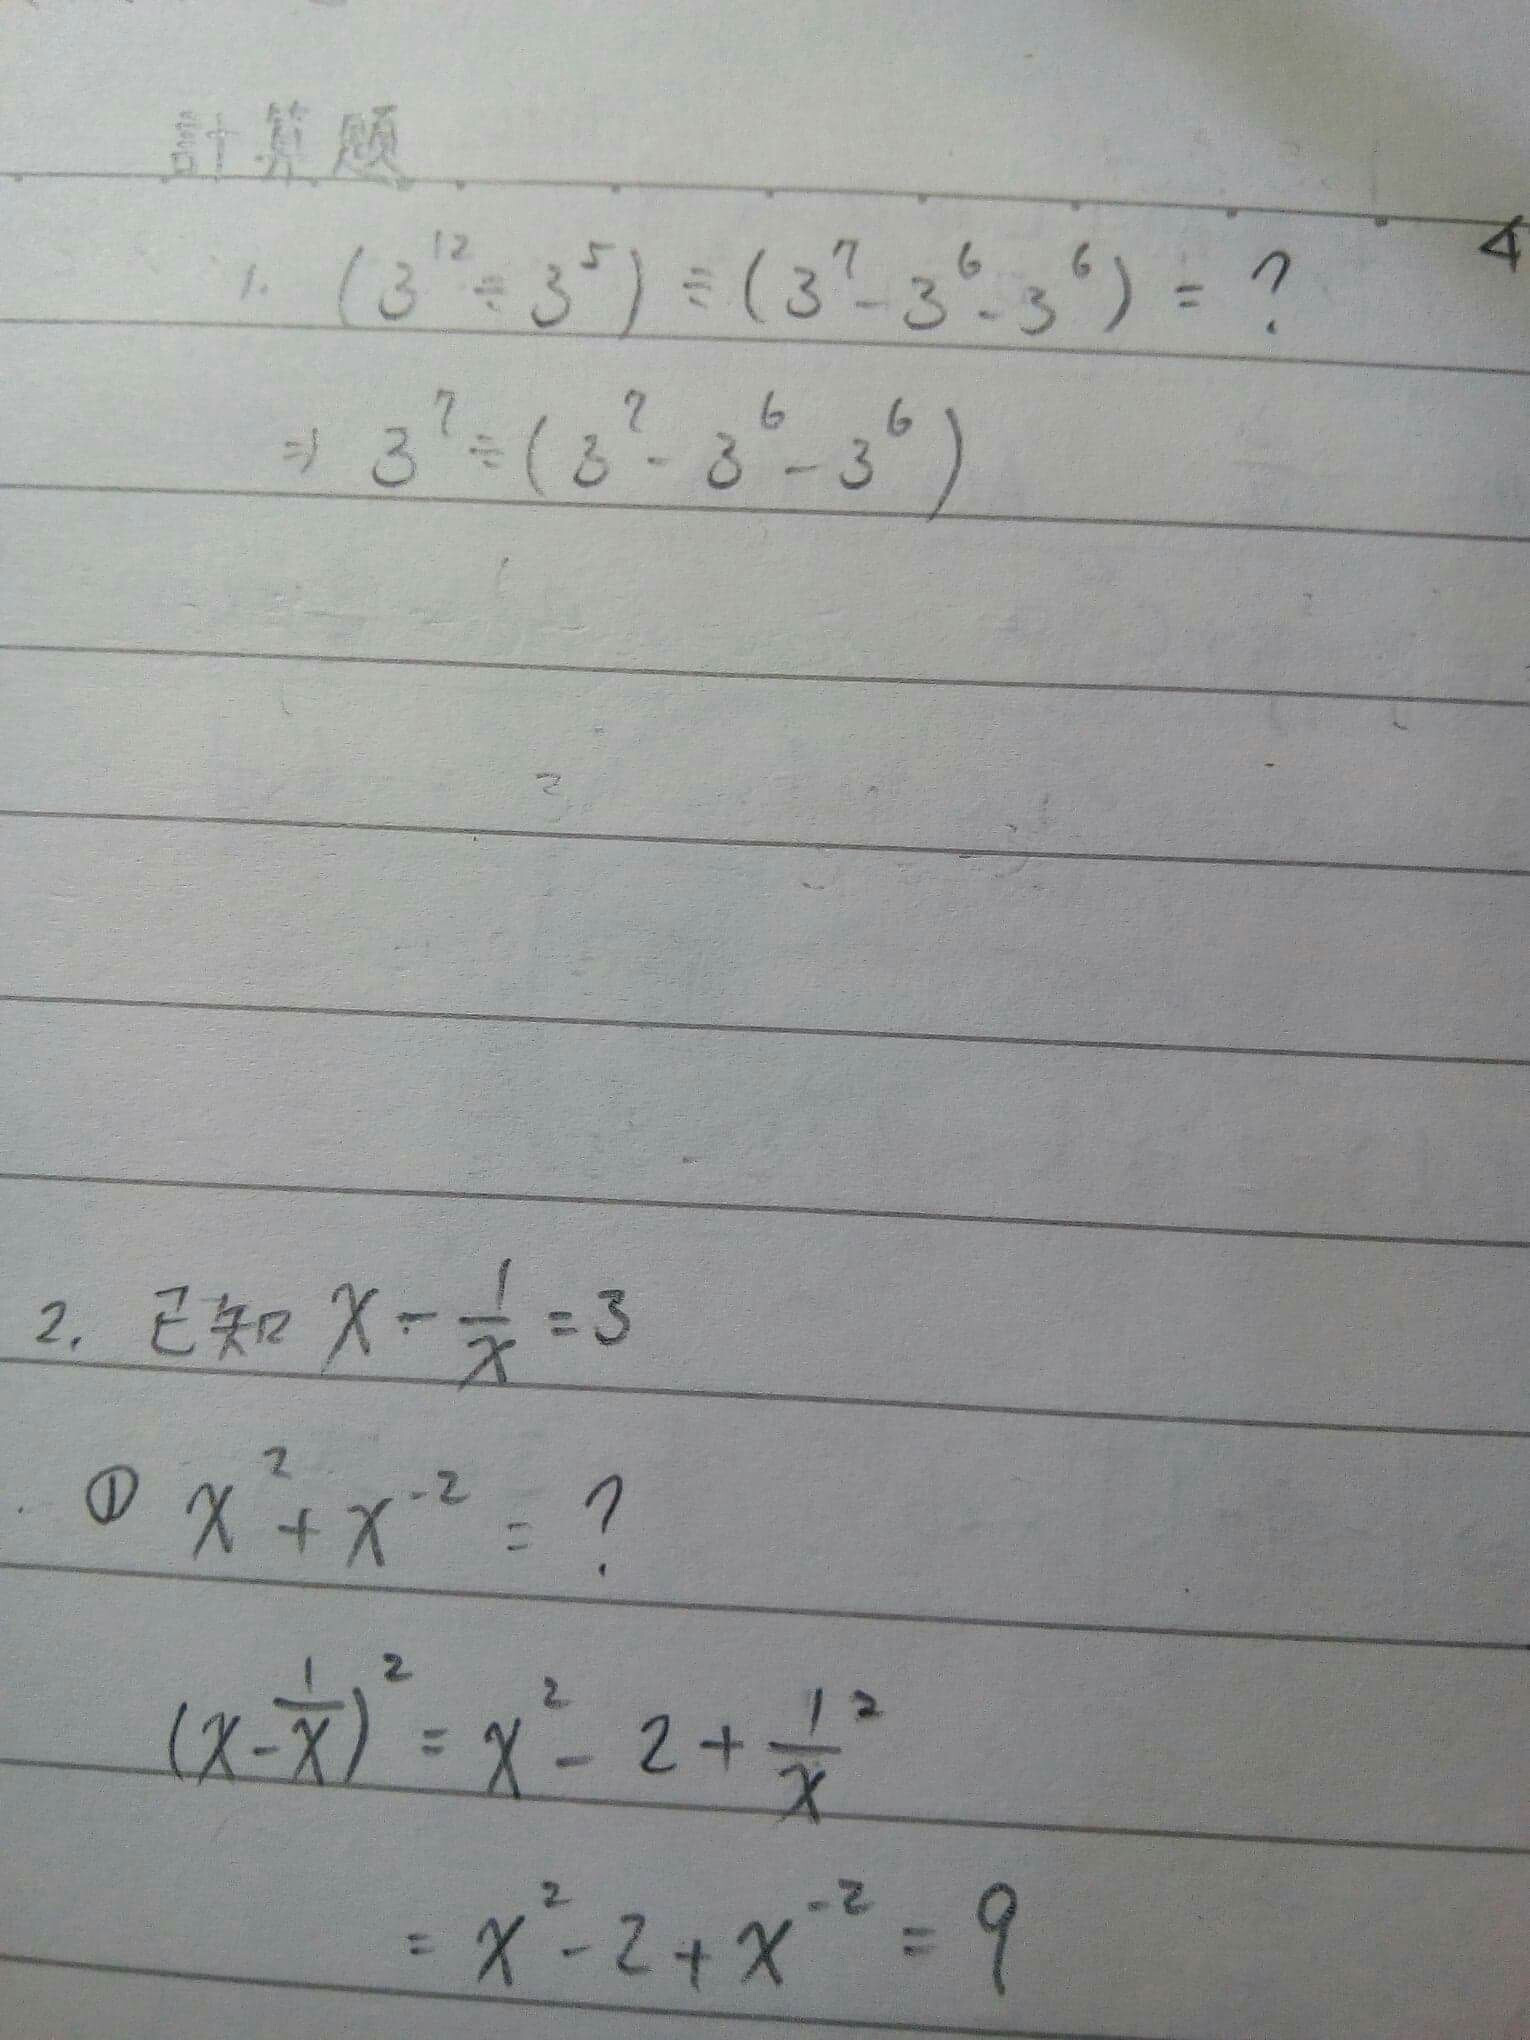 計算題
1. (3¹² ÷ 3⁵) ÷ (3⁷ - 3⁶ - 3⁶) = ?
⇒ 3⁷ ÷ (3⁷ - 3⁶ - 3⁶)
2. 已知 x - 1/x = 3
① x² + x⁻² = ?
(x - 1/x)² = x² - 2 + 1/x²
= x² - 2 + x⁻² = 9